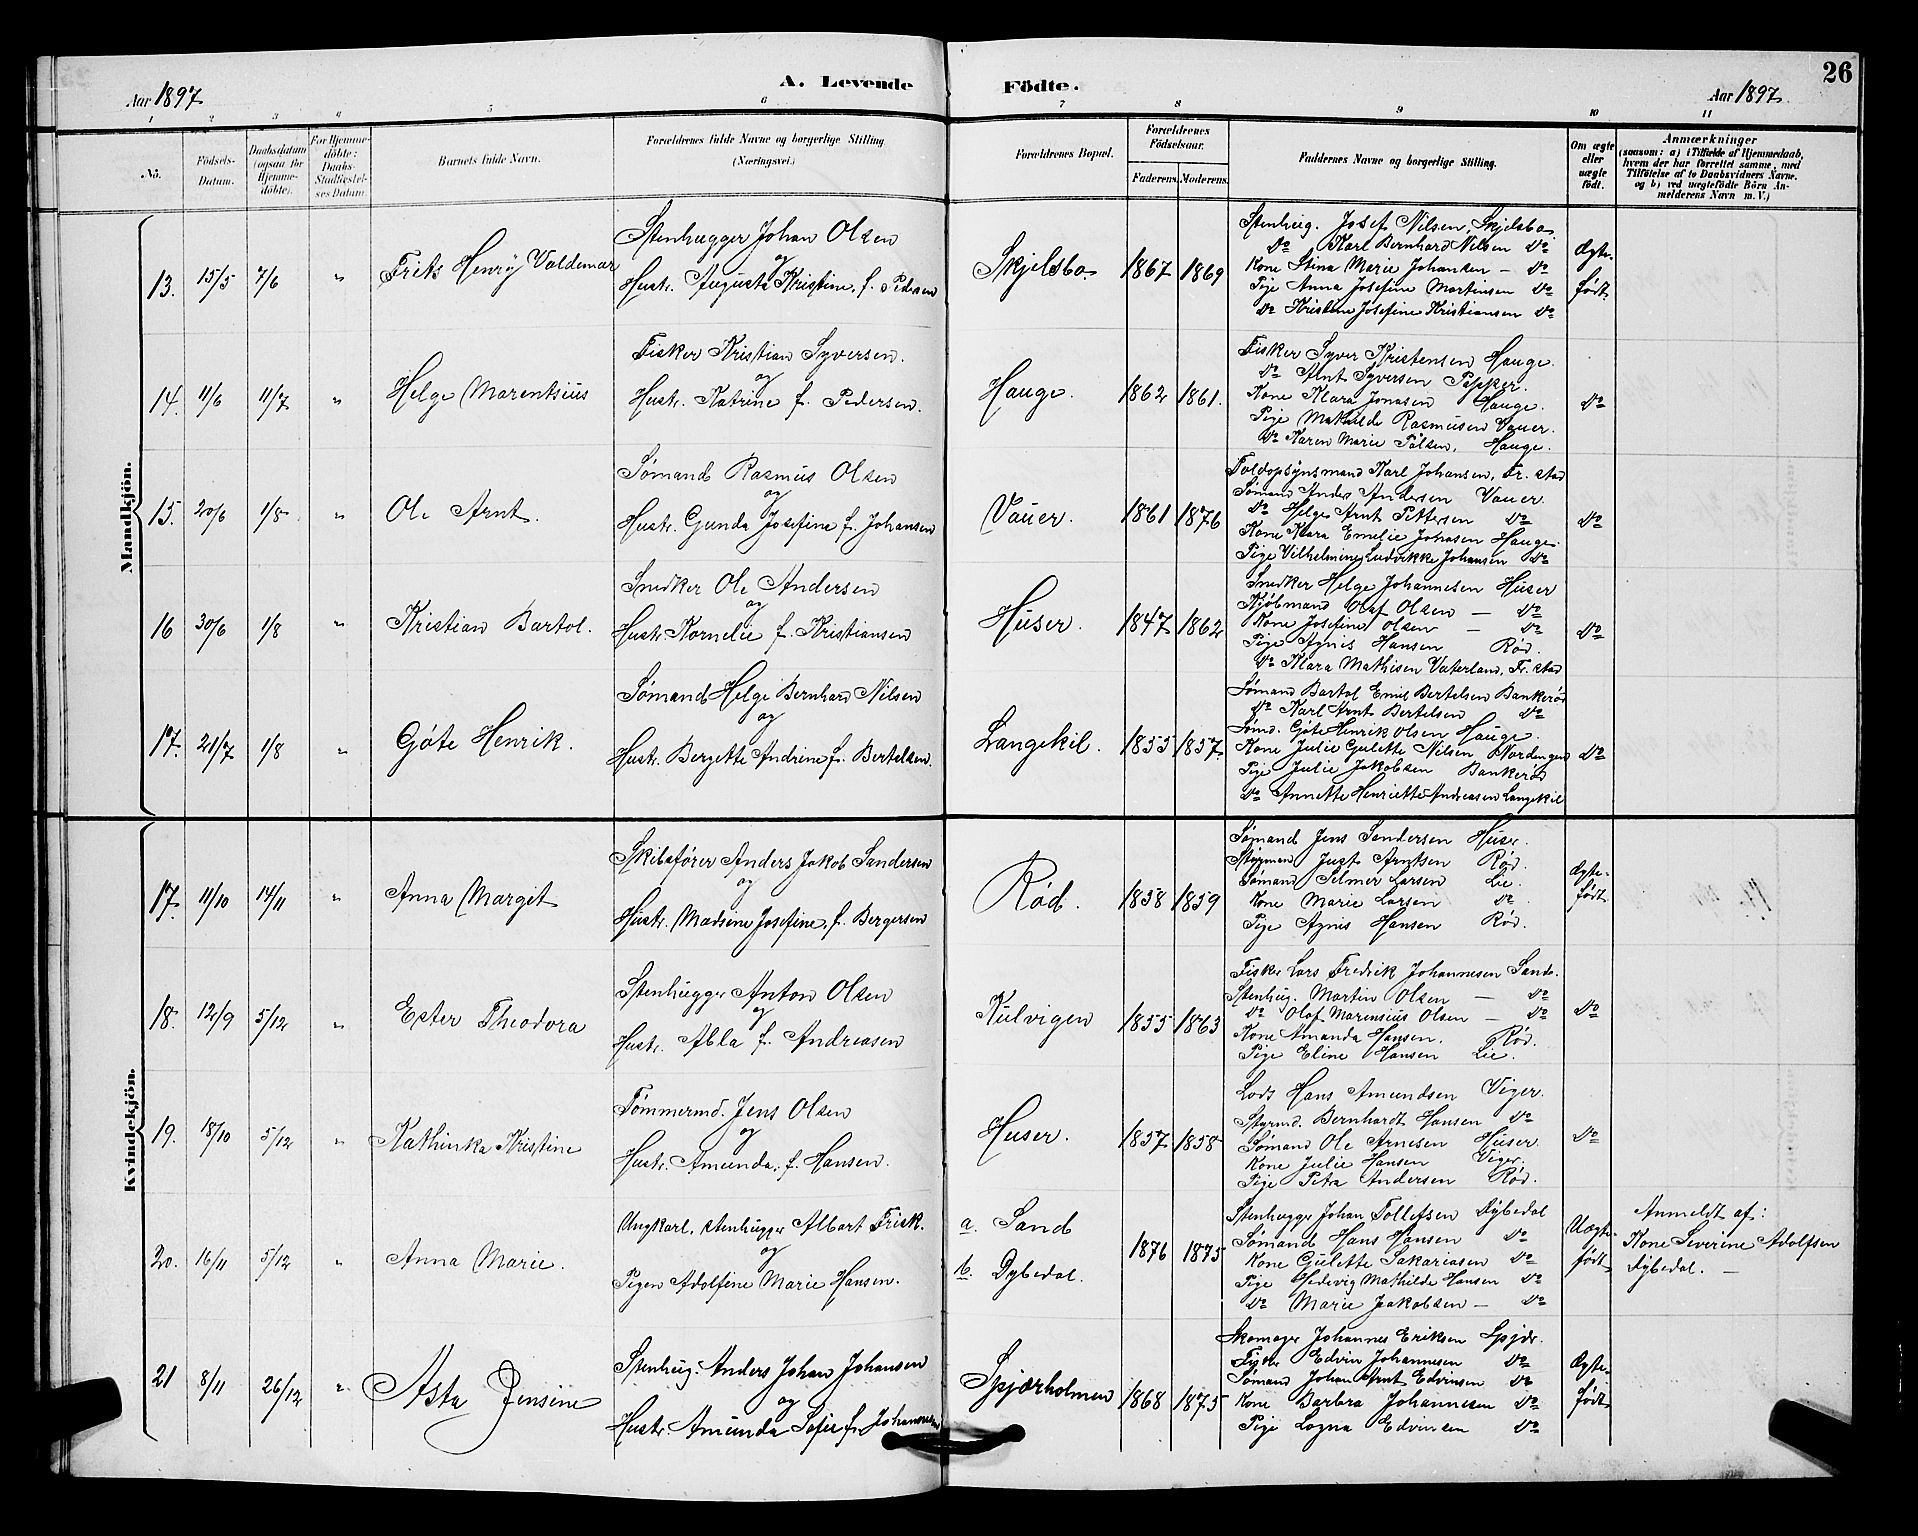 26
A. Levende Födte.
Aar 1897
Aar 1897
1 2 3 4 5 6 7 8 9 10 11
No.
Födsels-Datum.
Daabsdatum (ogsaa for Hjemmedöbte).
For Hjemmedöbte: Daabs Stadfæstelses Datum
Barnets fulde Navn.
Forældrenes fulde Navne og borgerlige Stilling (Næringsvei.)
Forældrenes Bopæl.
Forældrenes Födselsaar.
Faderens. Moderens.
Faddernes Navne og borgerlige Stilling.
Om ægte eller uægte födt.
Anmærkninger
(saasom: a) i Tilfælde af Hjemmedaab, hvem der har forrettet samme, med Tilföielse af to Daabsvidners Navne. og b) ved uægtefödte Börn Anmelderens Navn m. V.)
Mandkjön.
13. 15/5 7/6 " Frits Henry Valdemar
Stenhugger Johan Olsen
og
Hustr. Augusta Kristine, f. Pedersen
Skjelsbo 1867 1869
Stenhug. Josef Nilsen, Skjelsbo
Do Karl Bernhard Nilsen Do
Kone Stina Marie Johansen — Do
Pige Anna Josefine Martinsen Do
Do Kristine Josefine Kristiansen Do
Ægte-
født
14. 11/6 11/7 " Helge Marentsius
Fisker Kristian Syversen.
og
Hustr. Katrine f. Pedersen.
Hauge. 1862 1861.
Fisker Syver Kristensen Hauge.
Do Arnt Syversen Pepper.
Kone Klara Jonasen Hauge.
Pige Mathilde Rasmusen Vauer.
Do Karen Marie Pålsen, Hauge.
Do
15. 20/6 1/8 " Ole Arnt.
Sømand Rasmus Olsen
og
Hustr. Gunda Josefine f. Johansen
Vauer. 1861 1876
Toldopsynsmand Karl Johansen, Fr.stad
Sømand Anders Andersen Vauer.
Do Helge Arnt Pettersen Do
Kone Klara Emelie Johnsen Hauge.
Pige Vilhelmine Ludvikke Johansen Do
Do
16 30/6 1/8 " Kristian Bartol.
Snedker Ole Andersen
og
Hustr. Kornelie f. Kristiansen
Huser. 1847 1862
Snedker Helge Johannesen Huser
Kjøbmand Olaf Olsen — Do
Kone Josefine Olsen — Do
Pige Agnis Hansen Rød.
Do Klara Mathisen Vaterland, Fr.stad
Do
17. 21/7 1/8 " Gøte Henrik.
Sømand Helge Bernhard Nilsen
og
Hustr. Bergette Andrine f. Bertelsen.
Langekil. 1855 1857
Sømand Bartol Emil Bertelsen Bankerød
Do Karl Arnt Bertelsen Do
Sømd. Gøte Henrik Olsen Hauge.
Kone Julie Gulette Nilsen Nordengen
Pige Julie Jakobsen Bankerød
Do Annette Henriette Andreasen Langekil
Do
Kvindekjön.
17. 11/10 14/11 " Anna Margit
Skibsfører Anders Jakob Sandersen
og
Hustr. Madsine Josefine, f. Bergersen
Rød. 1858 1859
Sømand Jens Sandersen Huser.
Styrman Just Arntsen Rød.
Sømand Selmer Larsen Lie.
Kone Marie Larsen Do
Pige Agnis Hansen Rød.
Ægte-
født
18. 12/9 5/12 " Ester Theodora
Stenhugger Anton Olsen
og
Hustr. Abla f. Andreasen
Kulvigen 1855 1863
Fisker Lars Fredrik Johannesen Sand.
Stenhug. Martin Olsen — Do
Do Olaf Marensius Olsen — Do
Kone Amanda Hansen. Rød.
Pige Eline Hansen Lie.
Do
19. 18/10 5/12 " Kathinka Kristine
Tømmermd. Jens Olsen
og
Hustr. Amunda, f. Hansen.
Huser. 1857 1858
Lods Hans Amundsen Viger.
Styrmd. Bernhardt Hansen Do
Sømand Ole Arnesen Huser.
Kone Julie Hansen Viger.
Pige Petra Andersen Rød.
Do
20. 16/11 5/12 " Anna Marie.
Ungkarl, stenhugger Albert Frisk.
og
Pigen Adolfine Marie Hansen.
a. Sand
b. Dybedal.
1876 1875
Stenhugger Johan Tollefsen Dybedal
Sømand Hans Hansen Do
Kone Gulette Sakariasen Do
Pige Hedevig Mathilde Hansen Do
Do Marie Jakobsen — Do
Uægte-
født
Anmeldt af:
Kone Severine Adolfsen
Dybedal. —
21 8/11 26/12 " Asta Jensine
Stenhug. Anders Johan Johansen
og
Hustr. Amunda Sofie f. Johannesen
Spjærholmen 1868 1875
Skomager Johannes Eriksen Spjær.
Fisker Edvin Johannesen Do
Sømand Johan Arnt Edvinsen Do
Kone Barbra Johannesen Do
Pige Lagna Edvinsen Do
Ægte-
født